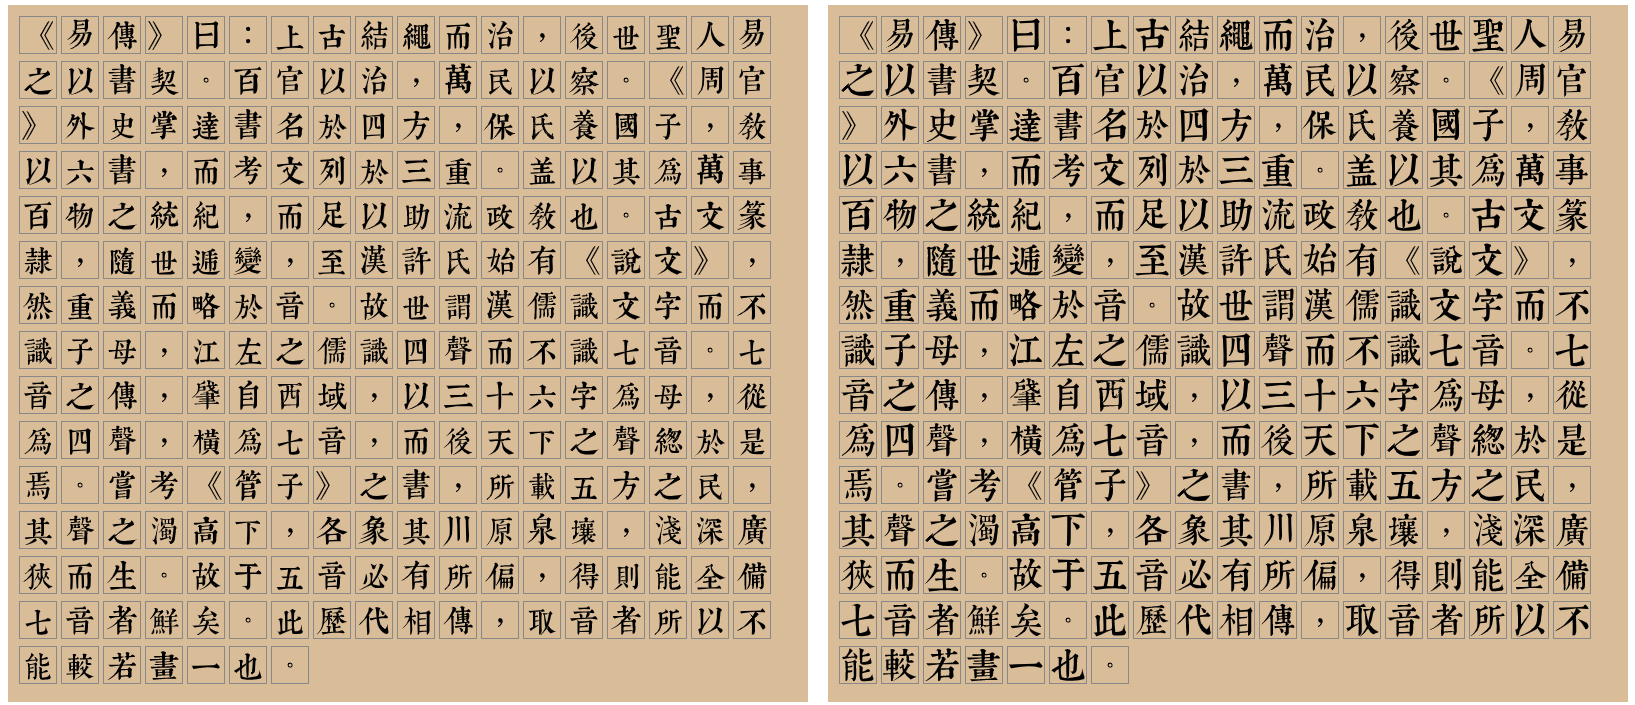 《易傳》曰：上古結繩而治，後世聖人易
之以書契。百官以治，萬民以察。《周官
》外史掌達書名於四方，保氏養國子，敎
以六書，而考文列於三重。盖以其爲萬事
百物之統紀，而足以助流政敎也。古文篆
隷，隨世遞變，至漢許氏始有《說文》，
然重義而略於音。故世謂漢儒識文字而不
識子母，江左之儒識四聲而不識七音。七
音之傳，肇自西域，以三十六字爲母，從
爲四聲，橫爲七音，而後天下之聲緫於是
焉。嘗考《管子》之書，所載五方之民，
其聲之濁高下，各象其川原泉壤，淺深廣
狹而生。故于五音必有所偏，得則能全備
七音者鮮矣。此歷代相傳，取音者所以不
能較若畫一也。
《易傳》曰：上古結繩而治，後世聖人易
之以書契。百官以治，萬民以察。《周官
》外史掌達書名於四方，保氏養國子，敎
以六書，而考文列於三重。盖以其爲萬事
百物之統紀，而足以助流政敎也。古文篆
隷，隨世遞變，至漢許氏始有《說文》，
然重義而略於音。故世謂漢儒識文字而不
識子母，江左之儒識四聲而不識七音。七
音之傳，肇自西域，以三十六字爲母，從
爲四聲，橫爲七音，而後天下之聲緫於是
焉。嘗考《管子》之書，所載五方之民，
其聲之濁高下，各象其川原泉壤，淺深廣
狹而生。故于五音必有所偏，得則能全備
七音者鮮矣。此歷代相傳，取音者所以不
能較若畫一也。